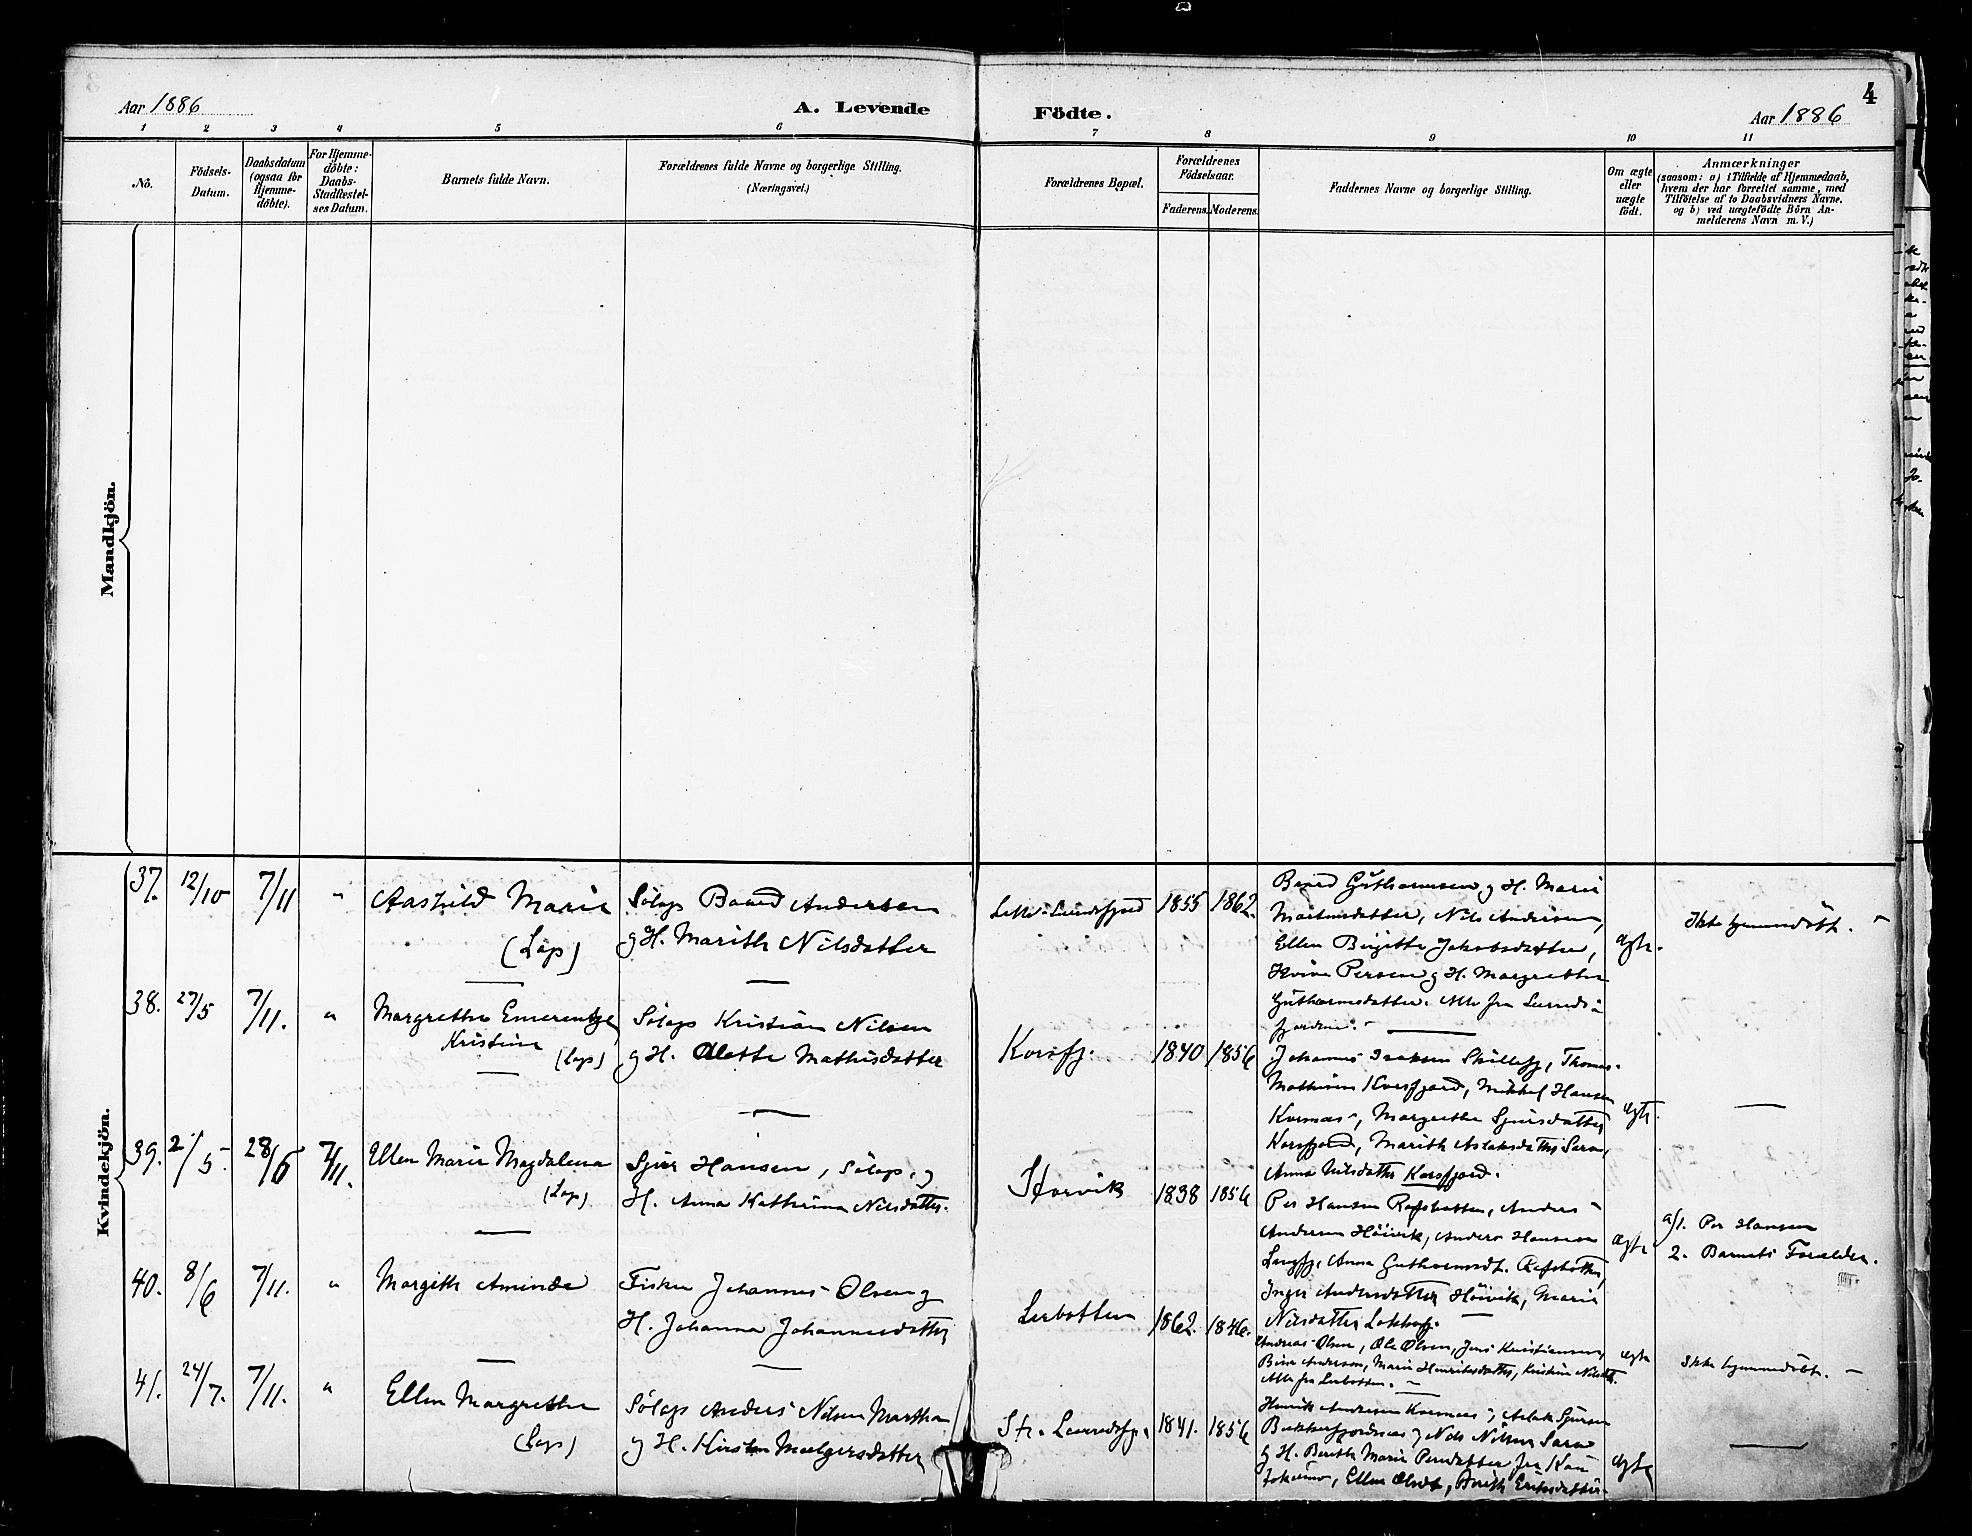 4
Aar 1886
A. Levende
Födte.
Aar 1886
1 2 3 4 5 6 7 8 9 10 11
No.
Födsels-
Datum.
Daabsdatum
(ogsaa for
Hjemme-
döbte).
For Hjemme-
döbte:
Daabs-
Stadfæstel-
ses Datum.
Barnets fulde Navn.
Forældrenes fulde Navne og borgerlige Stilling.
(Næringsvei.)
Forældrenes Bopæl.
Forældrenes
Födselsaar.
Faderens. Moderens.
Faddernes Navne og borgerlige Stilling.
Om ægte
eller
uægte
födt.
Anmærkninger
(saasom: a) i Tilfælde af Hjemmedaab,
hvem der har forrettet samme, med
Tilföielse af to Daabsvidners Navne,
og b) ved uægtefödte Börn An-
melderens Navn m. V.)
Mandkjön.
Kvindekjön.
37. 12/10 7/11 "
Aashild Marie
(Lap)
Sölap Baard Andersen
og H. Marith Nilsdatter
1855 1862.
Baard Guthormsen og H. Marie
Mortensdatter, Nils Andersen,
Ellen Birgitte Jakobsdatter,
Persen og H. Margrethe
Guthormsdatter. Alle fra
fjorden.
ægte.
Ikke hjemmedöbt. -
38. 27/5 7/11. "
Margrethe Emerentze
Kristine
(Lap)
Sölap Kristian Nilsen
og H. Alette Mathisdatter
Korsfj.
1840 1856
Johannes Isaksen Skillefj, Thomas
Mathisen Korsfjord, Mikkel Hansen
Korsnæs, Margrethe Sjursdatter
Korsfjord, Marith Aslaksdatter Sara,
Anna Nilsdatter Korsfjord.
ægte.
39. 2/5. 28/6 7/11.
Ellen Marie Magdalena
(Lap)
Sjur Hansen, Sölap. og
H. Anna Kathrina Nilsdatter.
Storvik
1838 1856
Per Hansen Rafsbotten, Anders
Andersen Höivik, Anders Hansen
Langfj, Anna Guthormsdt. Rafsbotten,
Inger Andersdatter Höivik, Marie
Nilsdatter
ægte
a/1. Per Hansen
2. Barnets Forældre.
40. 8/6 7/11. "
Margith Aminde
Fisker Johannes Olsen og
H. Johanna Johannesdatter
Lerbotten
1862. 1846.
Andreas Olsen, Ole Olsen, Jens Kristiansen,
Andersen, Marie Henriksdatter, Kristine
Alle fra Lerbotten. -
ægte
Ikke hjemmedöbt. -
41. 24/7. 7/11. "
Ellen Margrethe
(Lap)
Sölap Anders Nilsen
og H. Kirsten
St. Leeredsfj.
1841. 1856
Henrik Andersen Korsnæs, Aslak Sjursen
og Nils Nilsen Sara
og H. Berith Marie Persdatter fra
Ellen Olsdt, Berith Eriksdatter
ægte